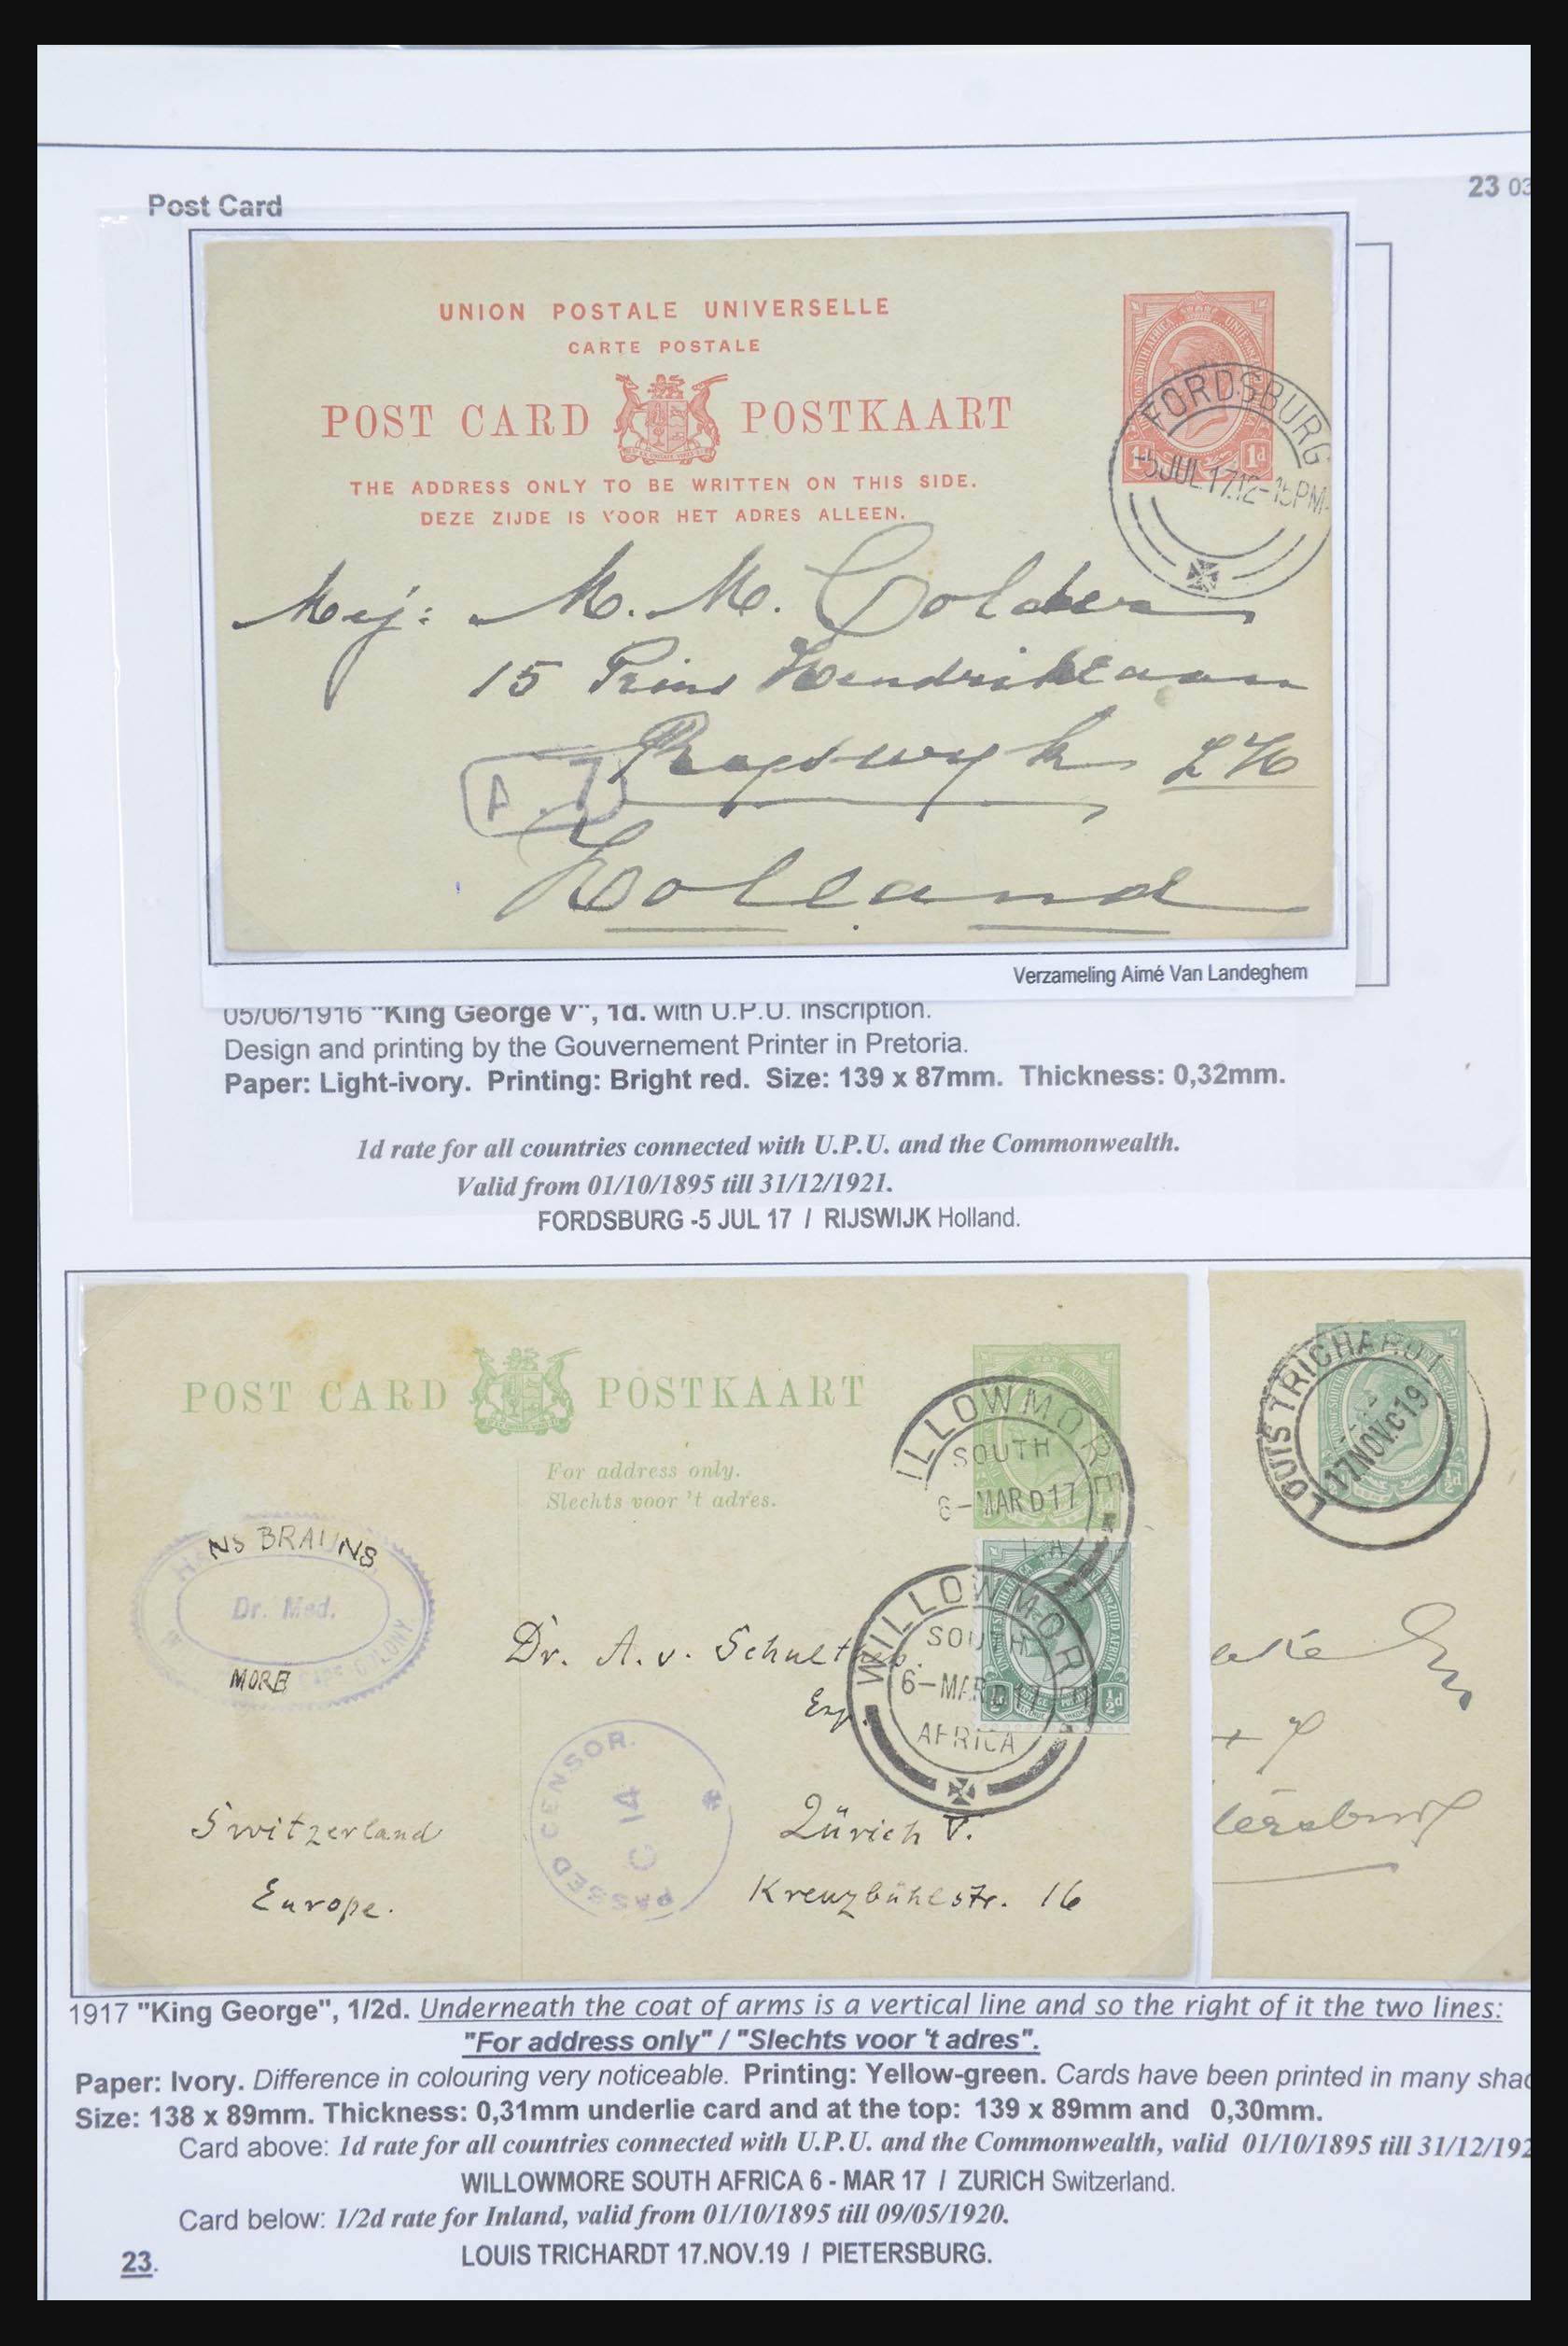 Post Card
23 03
UNION POSTALE UNIVERSELLE
CARTE POSTALE
POST CARD POSTKAART
THE ADDRESS ONLY TO BE WRITTEN ON THIS SIDE.
DEZE ZIJDE IS VOOR HET ADRES ALLEEN.
1d 1d
FORDSBURG
-5 JUL 17.12-15PM
Mej: M. M. Colder
15 Prins Hendriklaan
Ryswyk ZH
A.
Holland
Verzameling Aimé Van Landeghem
05/06/1916 "King George V", 1d. with U.P.U. inscription.
Design and printing by the Gouvernement Printer in Pretoria.
Paper: Light-ivory. Printing: Bright red. Size: 139 x 87mm. Thickness: 0,32mm.
1d rate for all countries connected with U.P.U. and the Commonwealth.
Valid from 01/10/1895 till 31/12/1921.
FORDSBURG -5 JUL 17 / RIJSWIJK Holland.
POST CARD POSTKAART
For address only.
Slechts voor 't adres.
ILLOWMORE
SOUTH
6-MAR D17
WILLOWMOR
SOUTH
6-MAR D17
AFRICA
½d
LOUIS TRICHARDT
17NOV.C19
½d
NS BRAUNS
Dr. Med.
MORE CAPE COLONY
Dr. A. v. Schulthess.
PASSED CENSOR.
C 14
Switzerland
Europe.
Zürich V.
Kreuzbühlstr. 16
tersburg
1917 "King George", 1/2d. Underneath the coat of arms is a vertical line and so the right of it the two lines:
"For address only" / "Slechts voor 't adres".
Paper: Ivory. Difference in colouring very noticeable. Printing: Yellow-green. Cards have been printed in many shad
Size: 138 x 89mm. Thickness: 0,31mm underlie card and at the top: 139 x 89mm and 0,30mm.
Card above: 1d rate for all countries connected with U.P.U. and the Commonwealth, valid 01/10/1895 till 31/12/192
WILLOWMORE SOUTH AFRICA 6 - MAR 17 / ZURICH Switzerland.
Card below: 1/2d rate for Inland, valid from 01/10/1895 till 09/05/1920.
LOUIS TRICHARDT 17.NOV.19 / PIETERSBURG.
23.